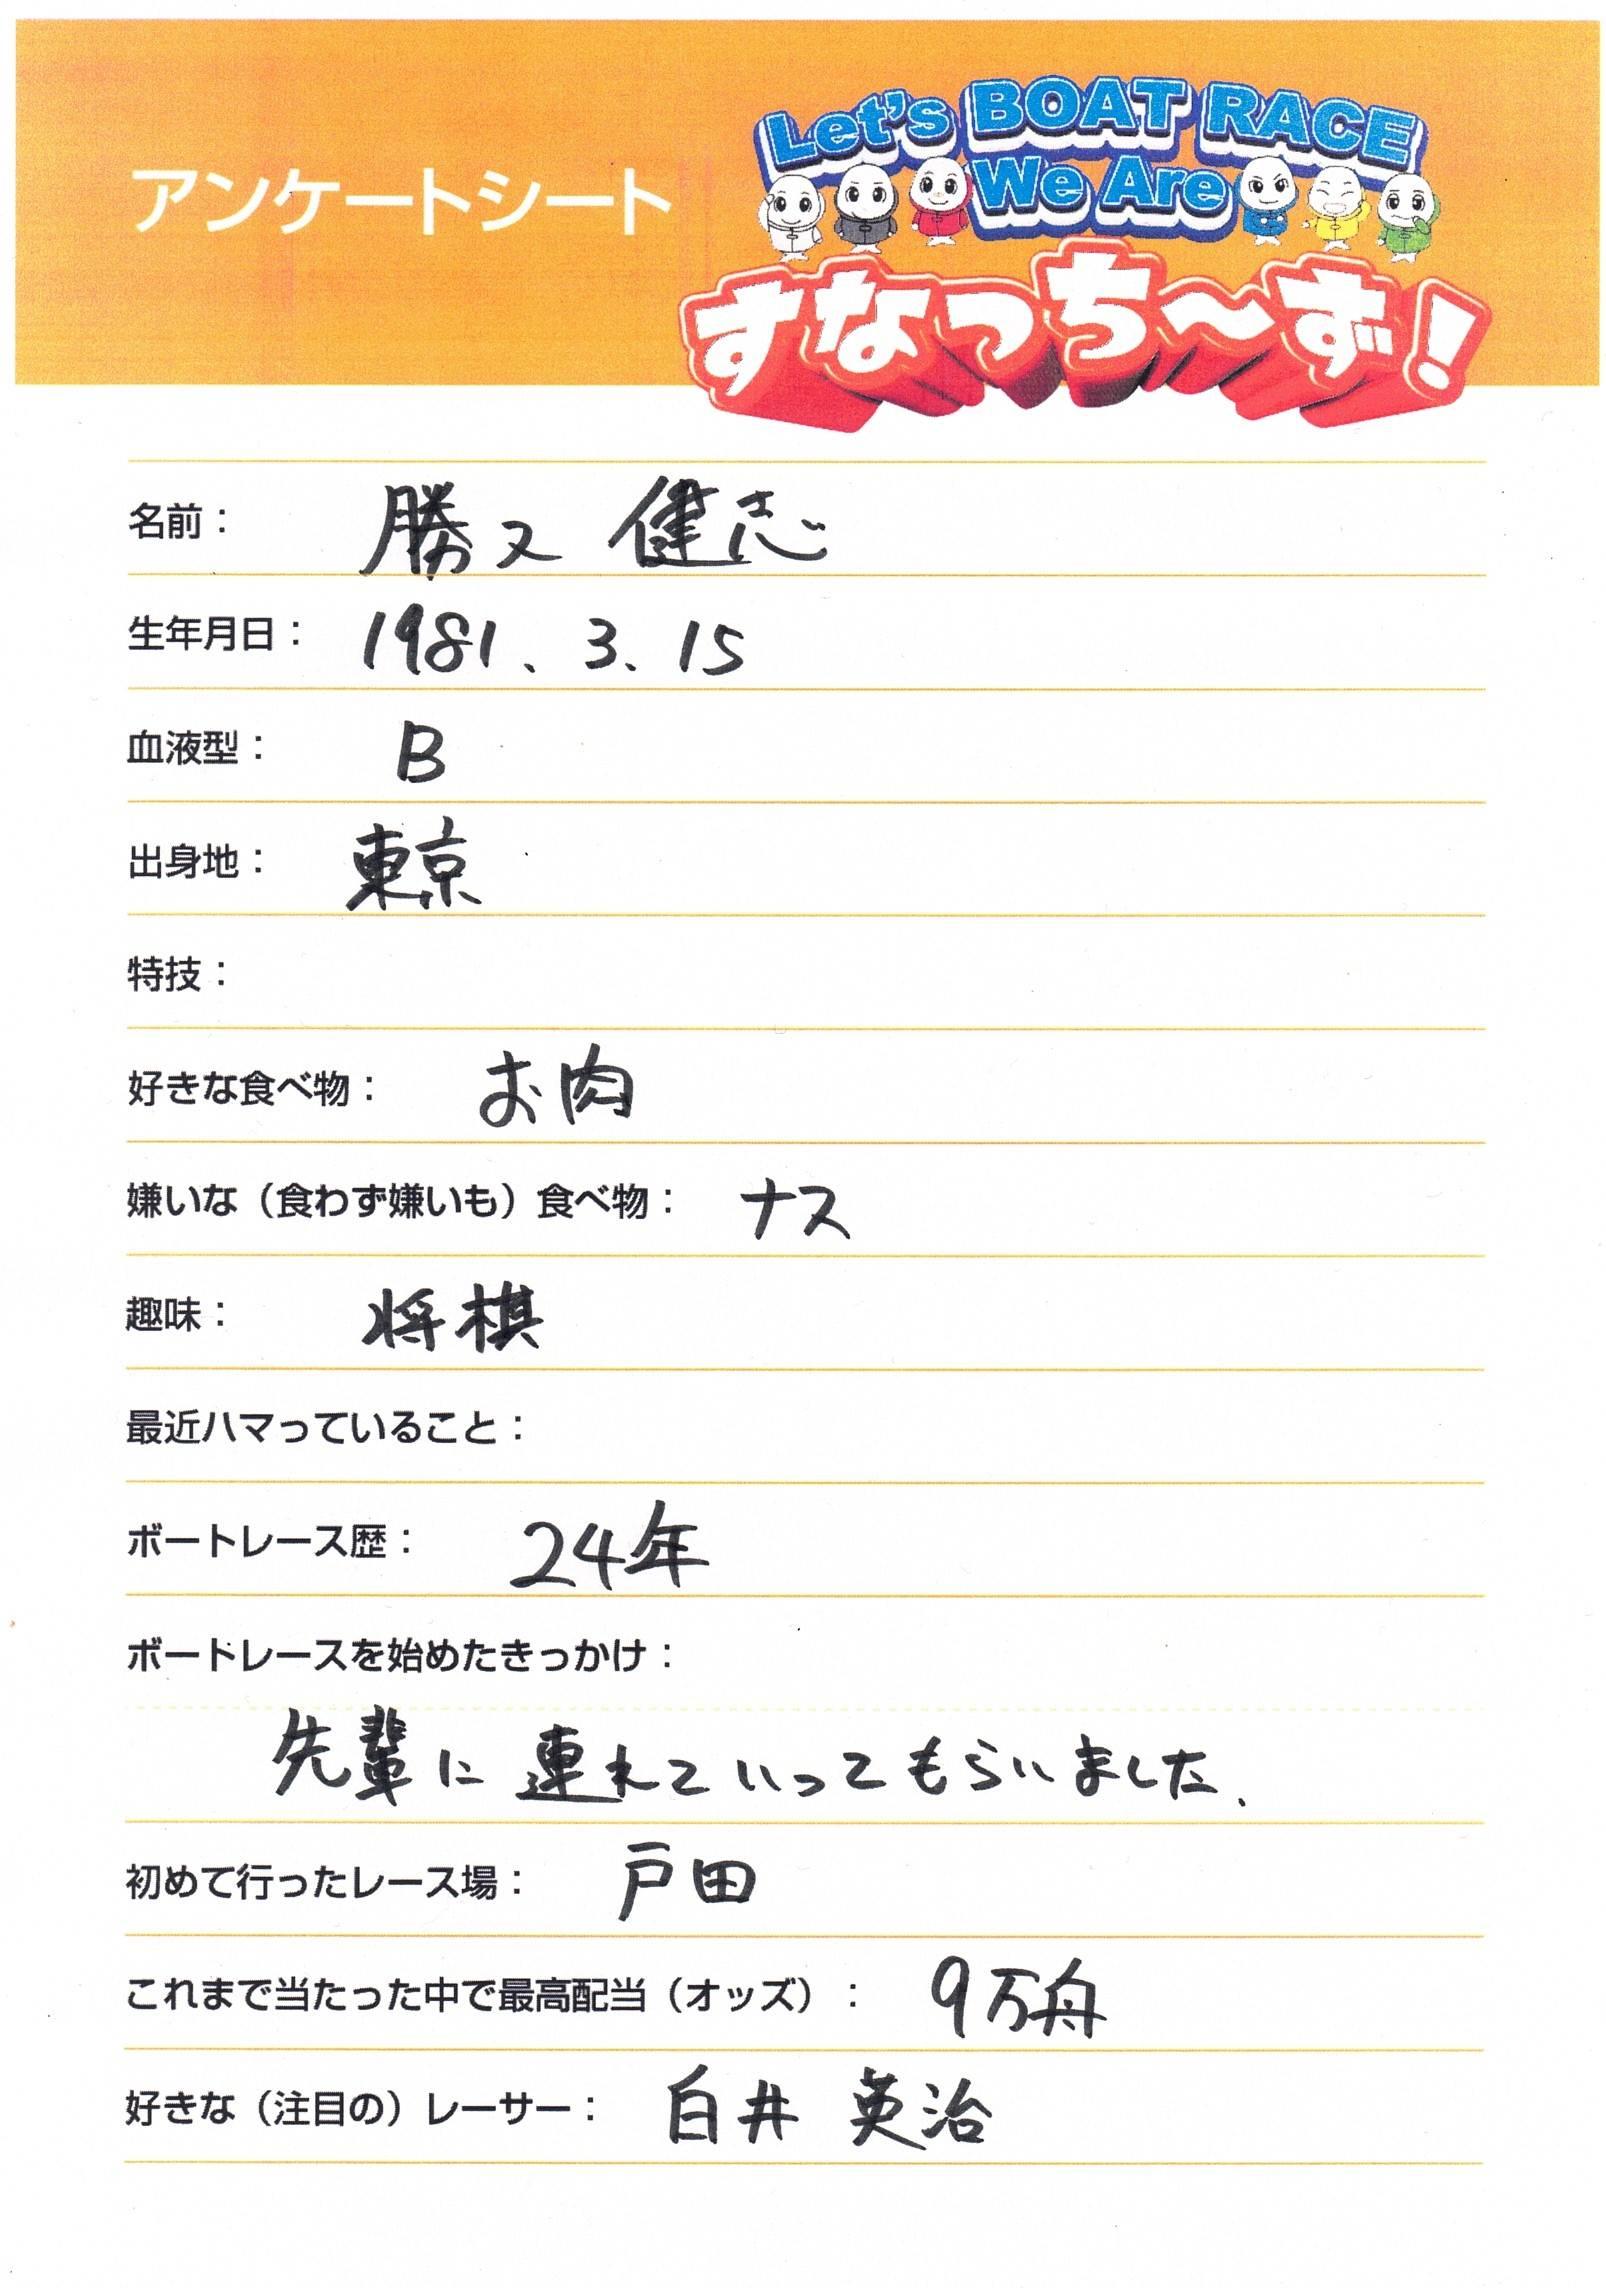 アンケートシート
Let's BOAT RACE
We Are
すなっち〜ず！
名前： 勝又 健志
生年月日： 1981. 3. 15
血液型： B
出身地： 東京
特技：
好きな食べ物： お肉
嫌いな（食わず嫌いも）食べ物： ナス
趣味： 将棋
最近ハマっていること：
ボートレース歴： 24年
ボートレースを始めたきっかけ：
先輩に連れていってもらいました.
初めて行ったレース場： 戸田
これまで当たった中で最高配当（オッズ）： 9万舟
好きな（注目の）レーサー： 白井 英治